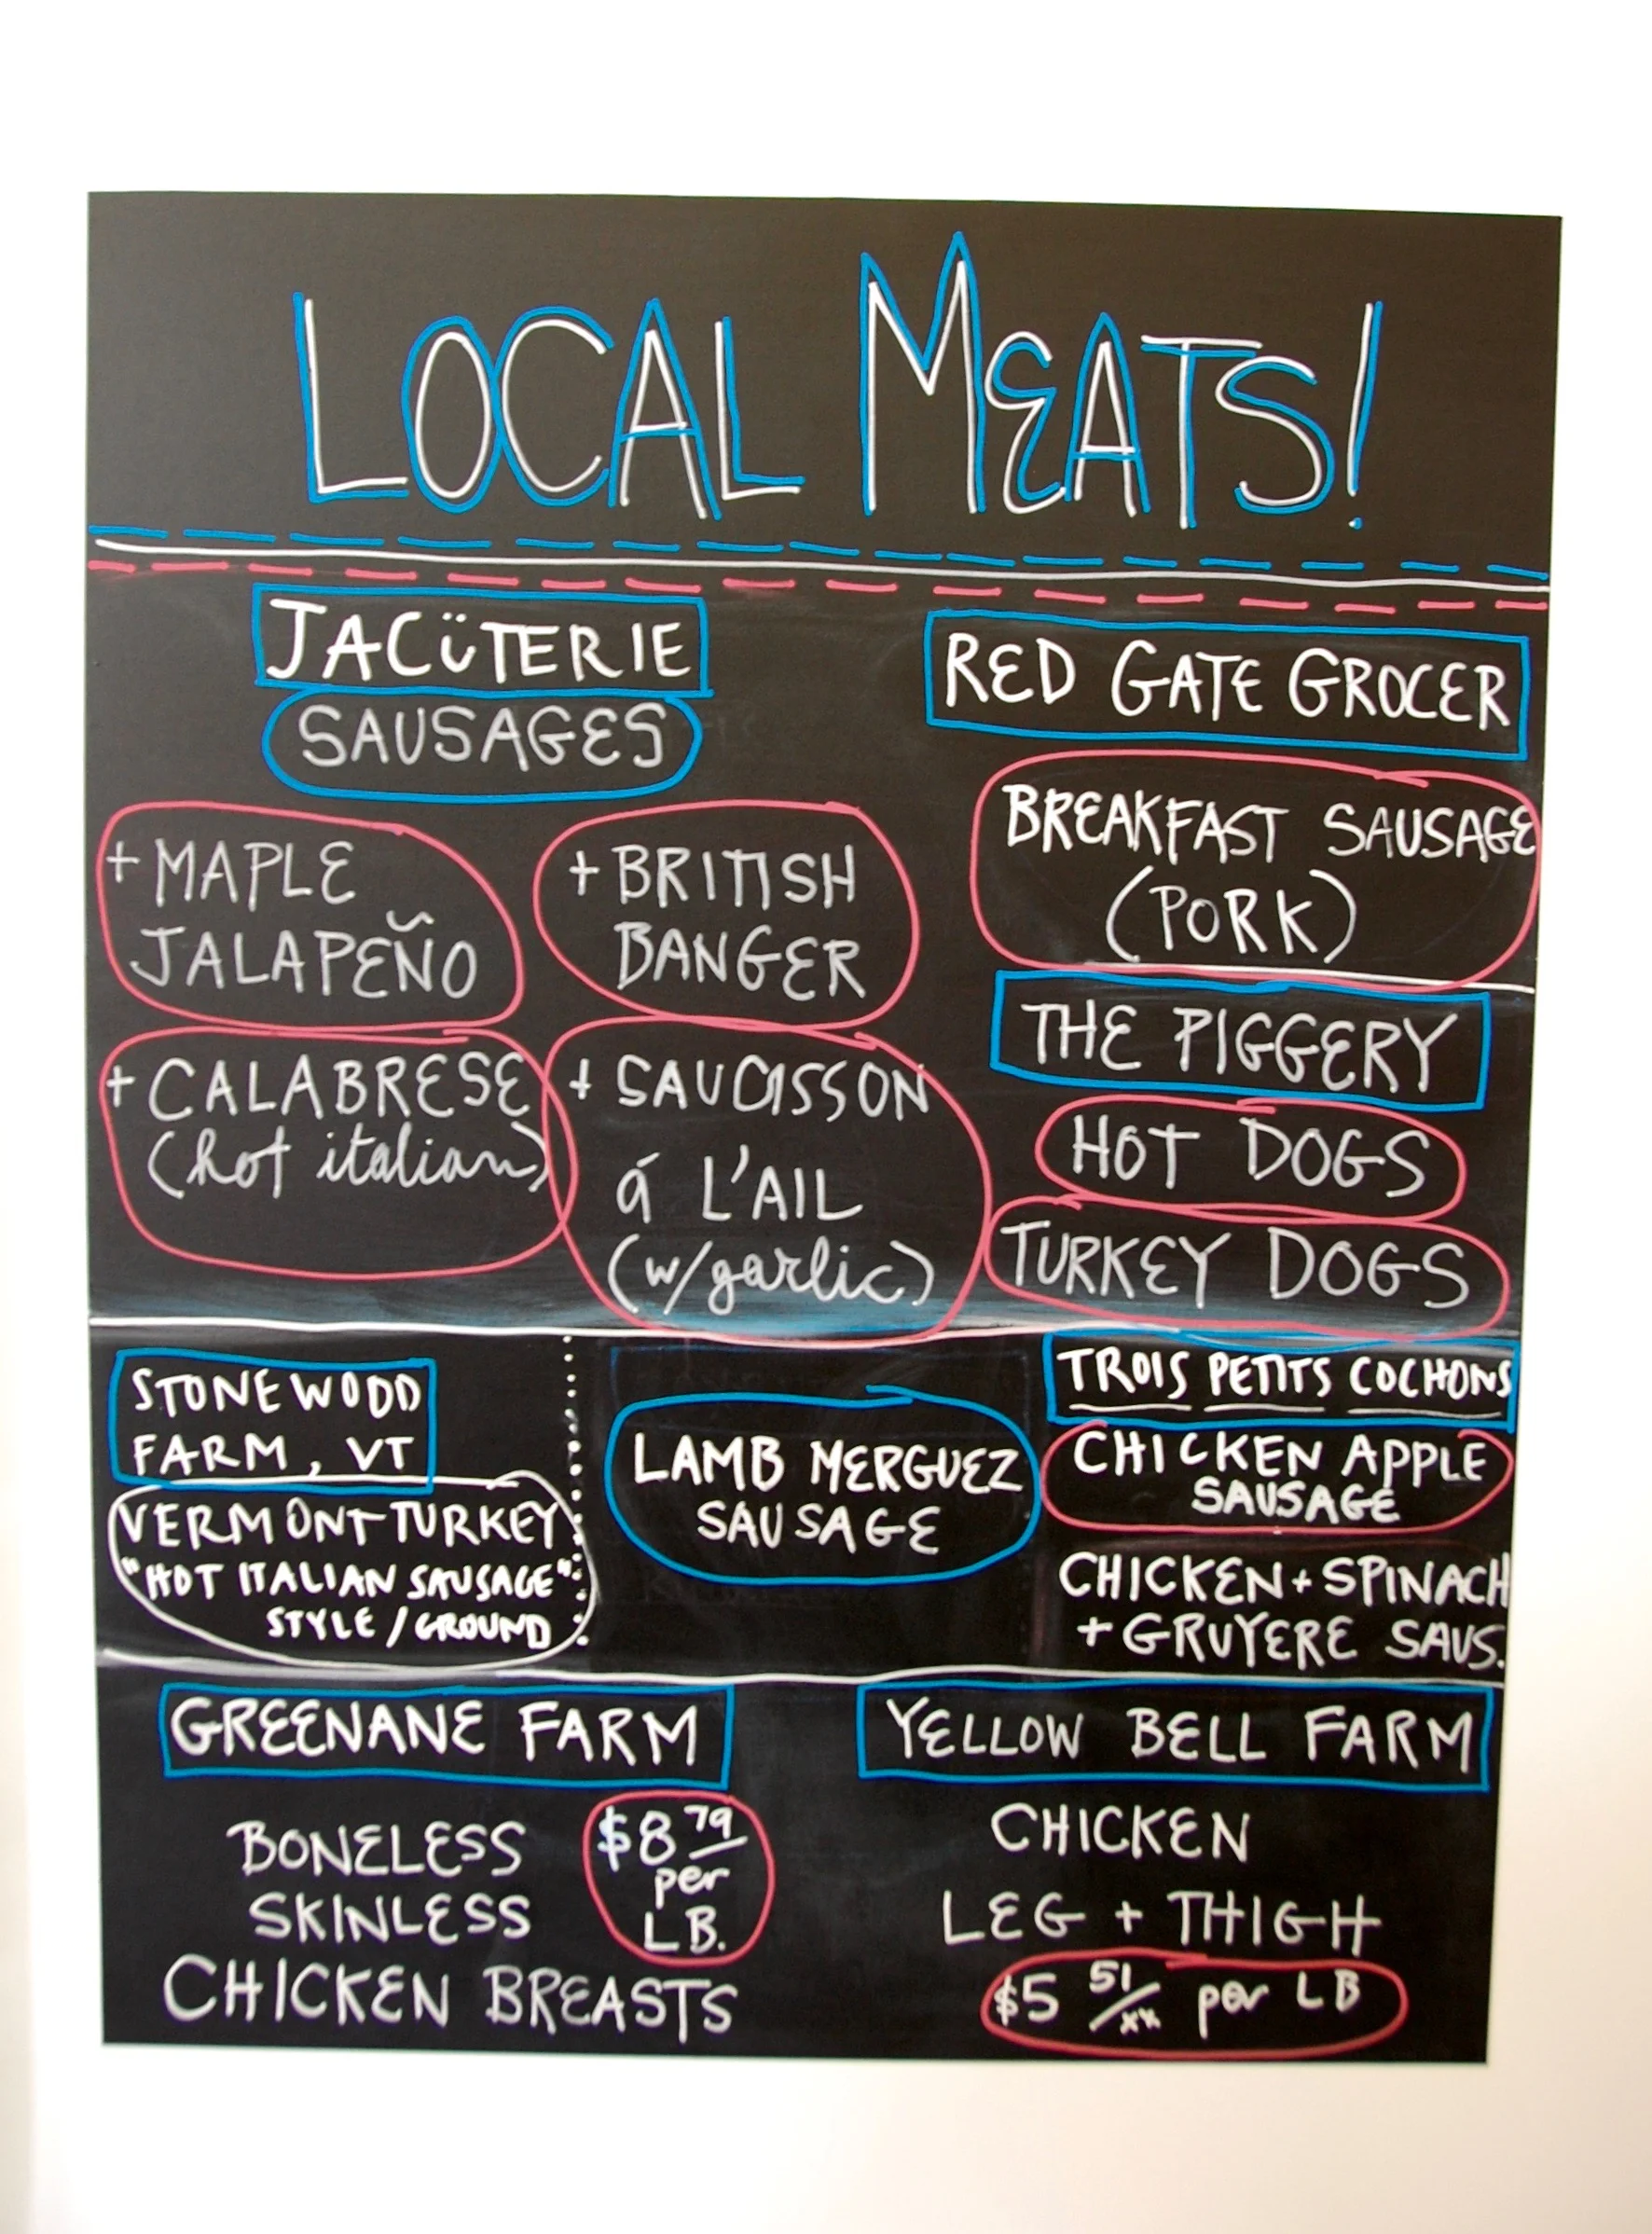 LOCAL MEATS!
JACÜTERIE
SAUSAGES
+ MAPLE
JALAPEÑO
+ BRITISH
BANGER
+ CALABRESE
(hot italian)
+ SAUCISSON
á L'AIL
(w/garlic)
RED GATE GROCER
BREAKFAST SAUSAGE
(PORK)
THE PIGGERY
HOT DOGS
TURKEY DOGS
STONEWOOD
FARM, VT
VERMONT TURKEY
"HOT ITALIAN SAUSAGE"
STYLE/GROUND
LAMB MERGUEZ
SAUSAGE
TROIS PETITS COCHONS
CHICKEN APPLE
SAUSAGE
CHICKEN + SPINACH
+ GRUYERE SAUS.
GREENANE FARM
BONELESS
SKINLESS
CHICKEN BREASTS
$8 79
per
LB.
YELLOW BELL FARM
CHICKEN
LEG + THIGH
$5 51/xx per LB